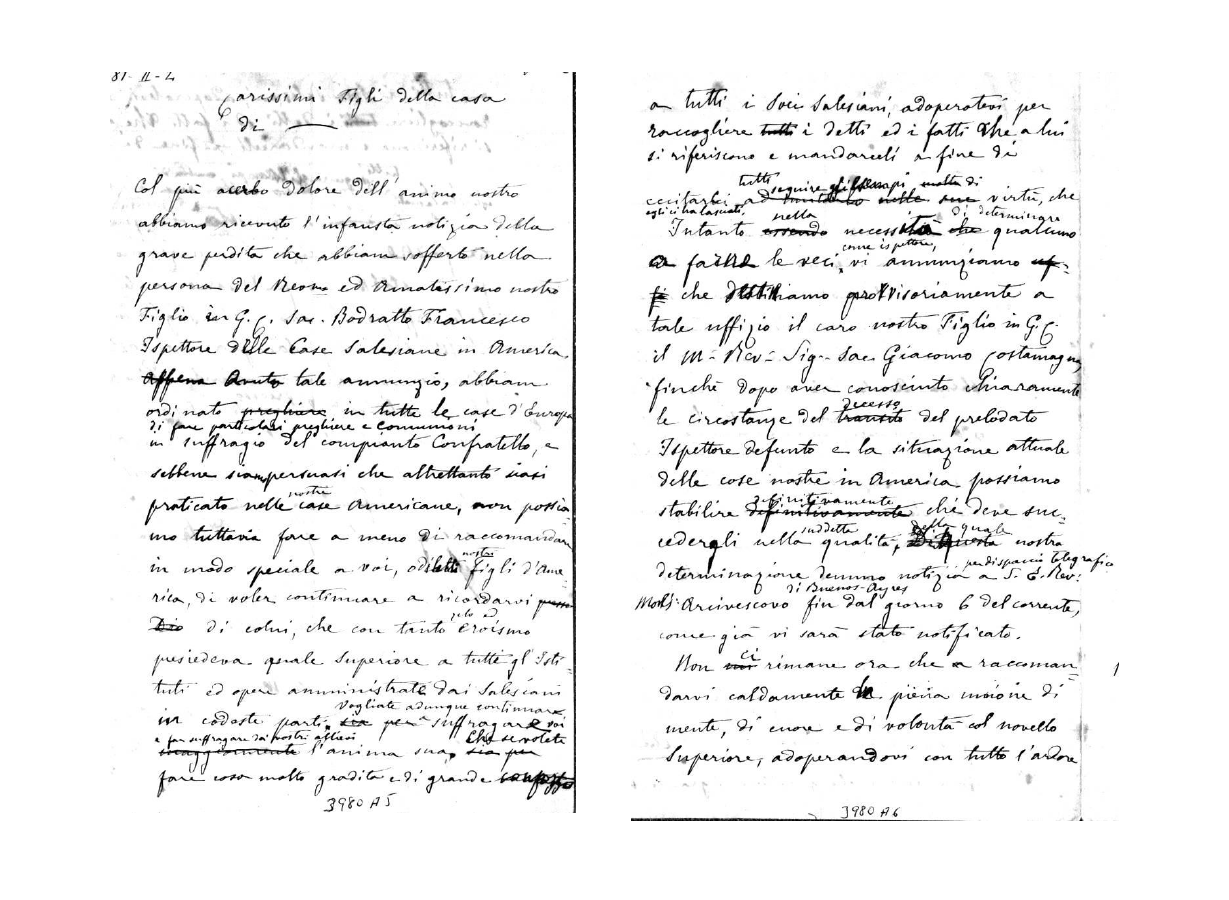 81-II-2
Carissimi Figli della casa
di —
Col più acerbo dolore dell'animo nostro
abbiamo ricevuto l'infausta notizia della
grave perdita che abbiam sofferto nella
persona del Rev.mo ed Amatissimo nostro
Figlio in G. C. Sac. Bodratto Francesco
Ispettore delle Case Salesiane in America.
Appena Avuto tale annunzio, abbiam
ordinato preghiere in tutte le case d'Europa
di fare particolari preghiere e comunioni
in suffragio del compianto Confratello, e
sebbene siam persuasi che altrettanto siasi
praticato nelle nostre case Americane, non possia-
mo tuttavia fare a meno di raccomandare
in modo speciale a voi, o diletti nostri figli d'Ame-
rica, di voler continuare a ricordarvi presso
Dio di colui, che con tanto zelo ed eroismo
presiedeva quale Superiore a tutti gl'Isti-
tuti ed opere amministrate dai Salesiani
Vogliate adunque continuare
in codeste parti. sia per suffragare voi
e far suffragare dai vostri allievi Che se volete
l'anima sua, sia per
fare cosa molto gradita e di grande conforto
3980 A5
a tutti i Soci Salesiani, adoperatevi per
raccogliere tutti i detti ed i fatti che a lui
si riferiscono e mandarceli a fine di
tutti seguire gli esempi molta di
eccitarci ad imitarlo nelle sue virtù, che
egli ci ha lasciati. nella di determinare
Intanto essendo necessità che qualcuno
come ispettore,
a farne le veci, vi annunziamo uf-
fi che destiniamo provvisoriamente a
tale uffizio il caro nostro Figlio in G. C.
il M- Rev- Sig- Sac. Giacomo Costamagna,
finchè dopo aver conosciuto chiaramente
decesso
le circostanze del transito del prelodato
Ispettore defunto e la situazione attuale
delle cose nostre in America possiamo
definitivamente
stabilire definitivamente chi deve suc-
suddetta della quale
cedergli nella qualità, Di questa nostra
per dispaccio telegrafico
determinazione demmo notizia a S. E. Rev:
di Buenos-Ayres
Mons: Arcivescovo fin dal giorno 6 del corrente,
come già vi sarà stato notificato.
ci
Non rimane ora che a raccoman-
darvi caldamente la piena unione di
mente, di cuore e di volontà col novello
Superiore, adoperandovi con tutto l'ardore
3980 A6